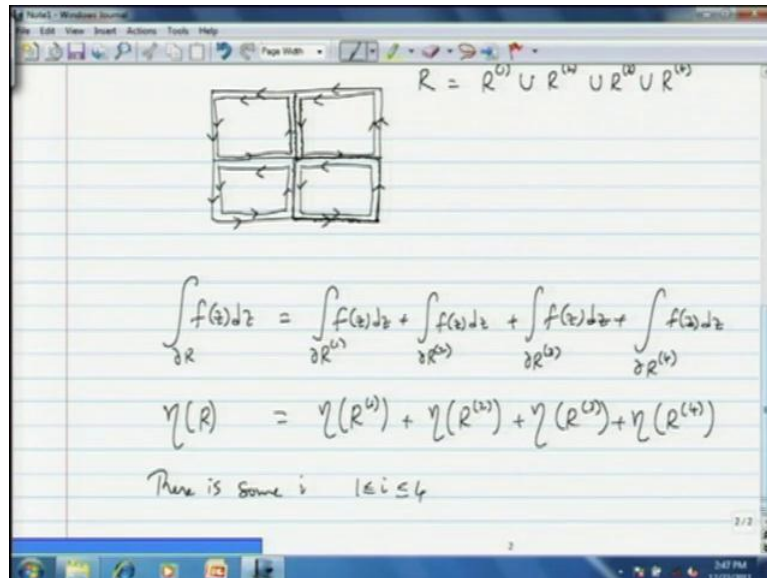 Note1 - Windows Journal
File Edit View Insert Actions Tools Help
Page Width
R = R^(1) ∪ R^(2) ∪ R^(3) ∪ R^(4)
∫_∂R f(z)dz = ∫_∂R^(1) f(z)dz + ∫_∂R^(2) f(z)dz + ∫_∂R^(3) f(z)dz + ∫_∂R^(4) f(z)dz
η(R) = η(R^(1)) + η(R^(2)) + η(R^(3)) + η(R^(4))
There is some i 1≤i≤4
2/2
2
2:47 PM